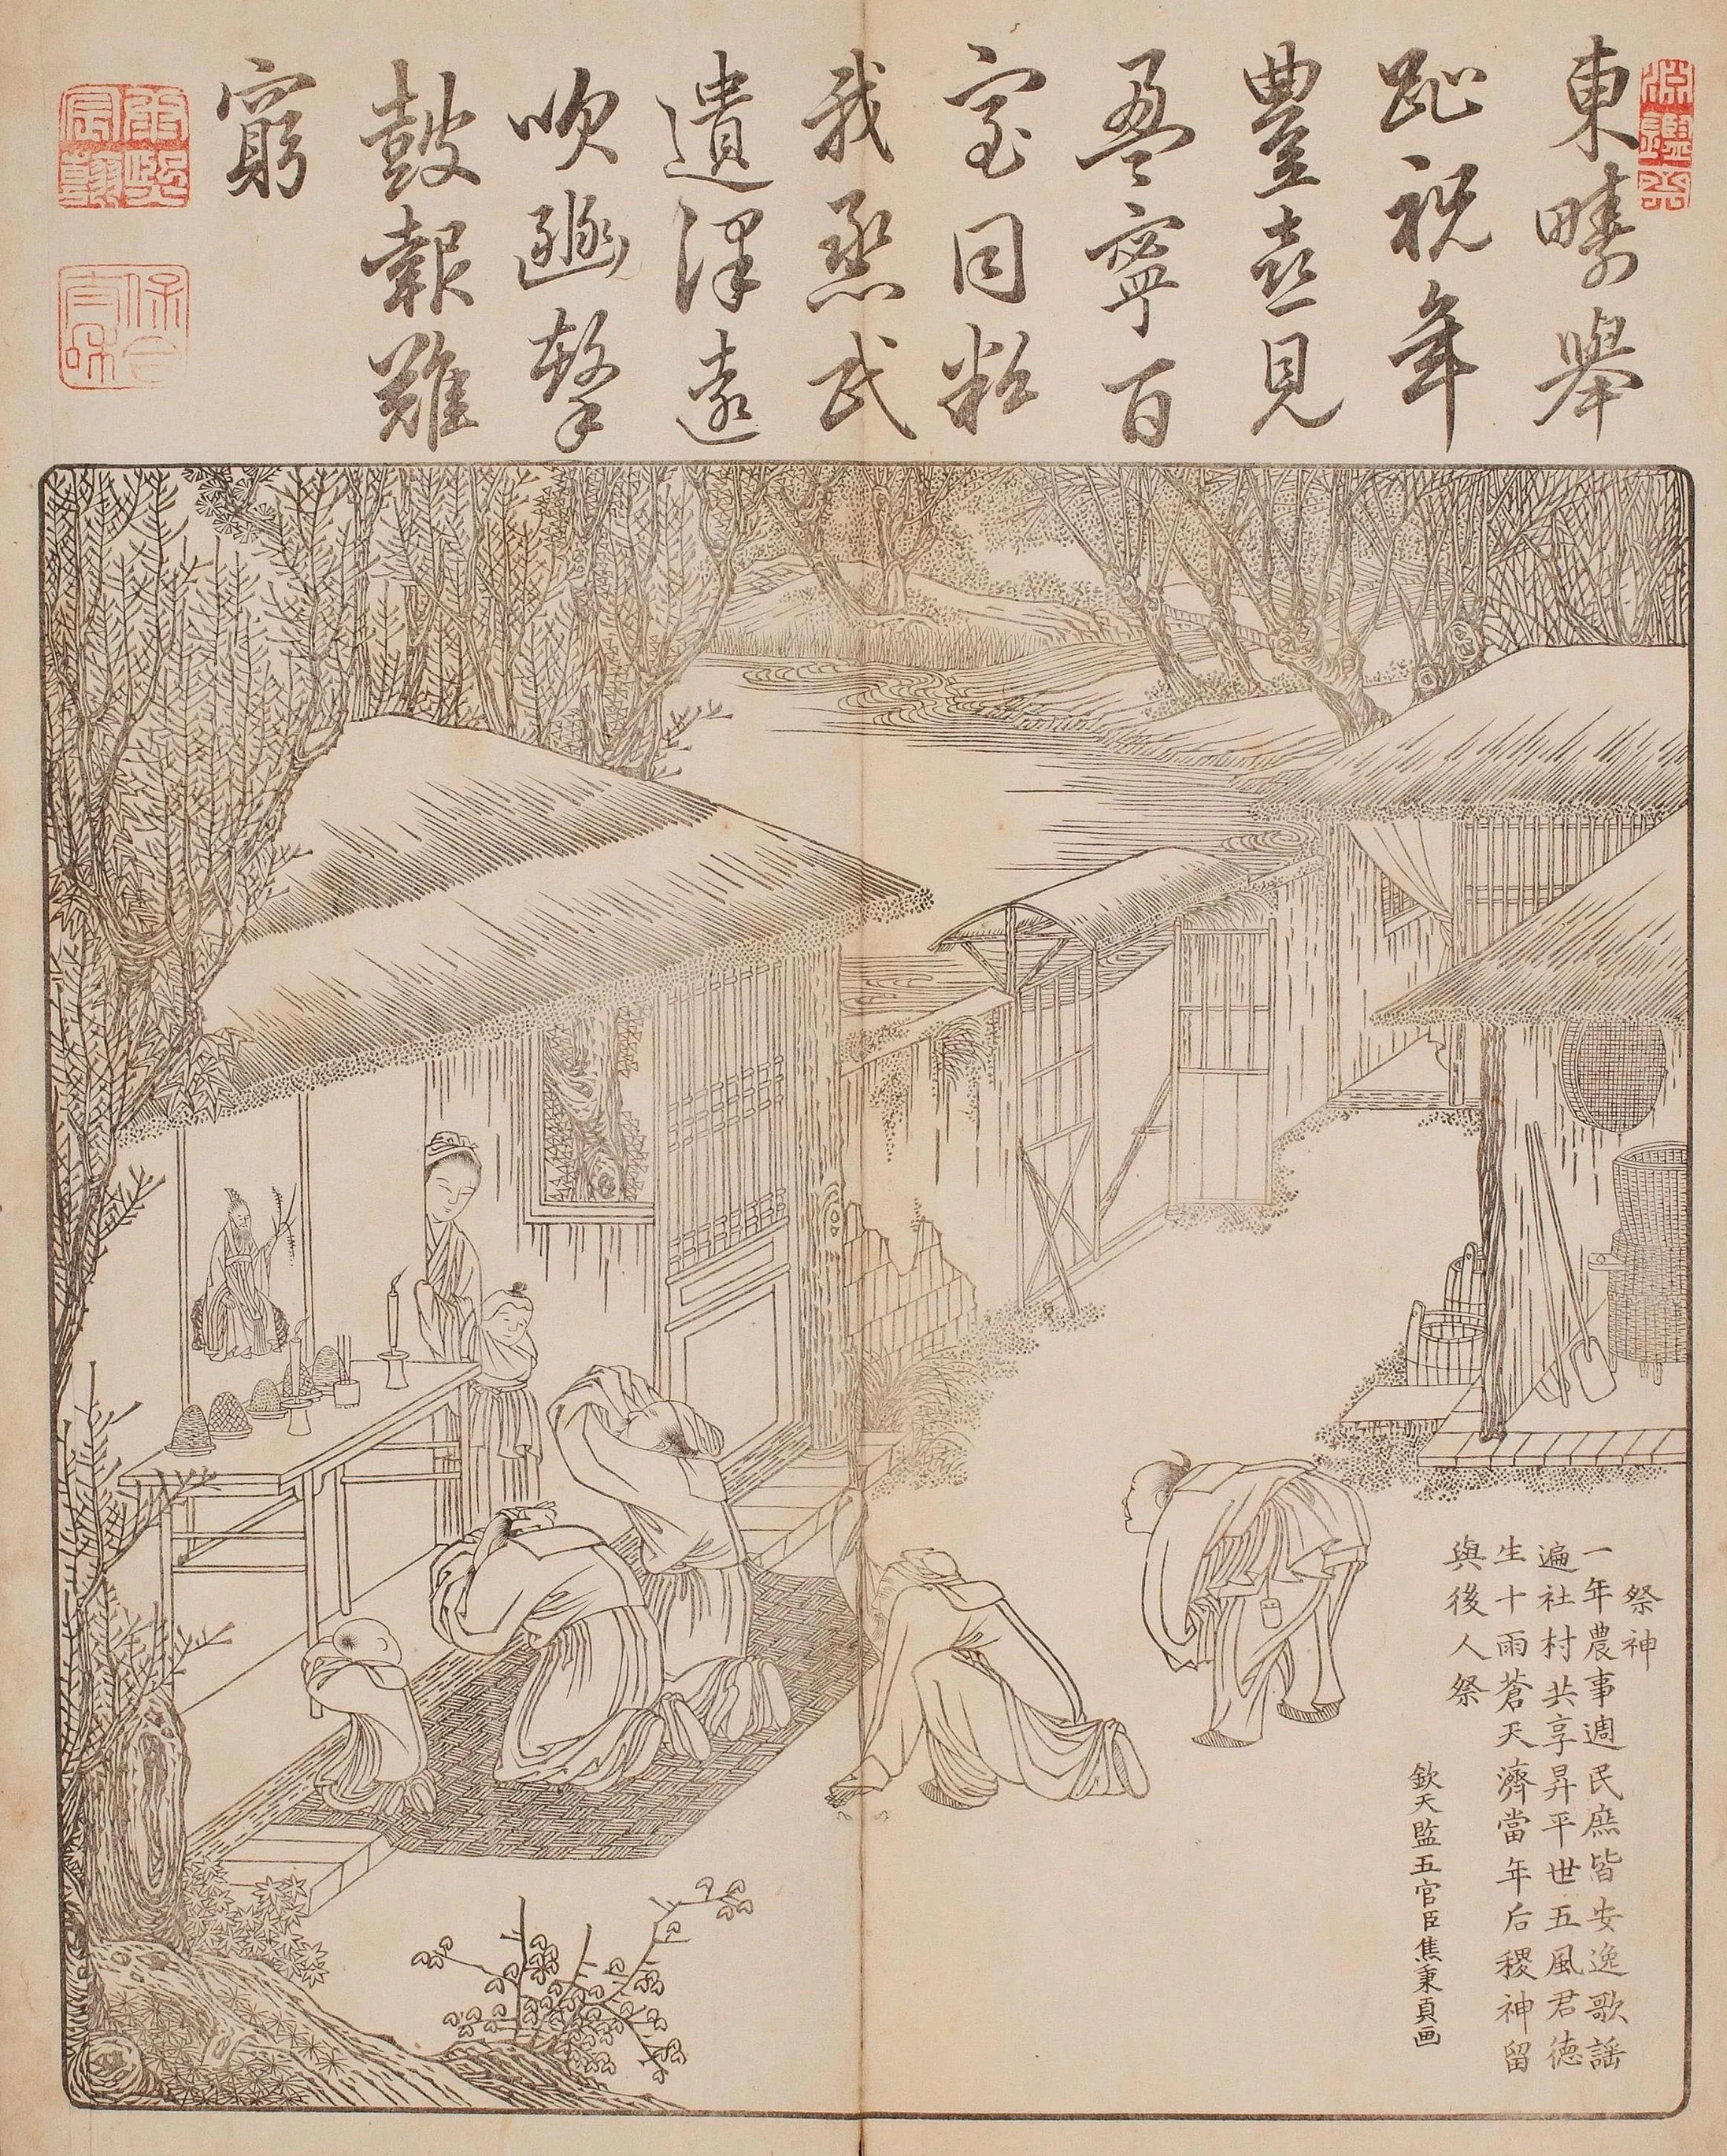 淵鑒齋
東疇舉
趾祝年
豐喜見
盈寧百
室同粒
我烝民
遺澤遠
吹豳擊
鼓報難
窮
康熙宸翰
保合太和
祭神
一年農事週民庶皆安逸歌謡
遍社村共享昇平世五風君徳
生十雨蒼天濟當年后稷神留
與後人祭
欽天監五官臣焦秉貞画